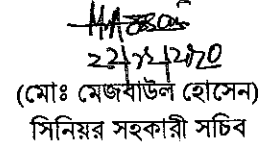 22/12/2020
(মোঃ মেজবাউল হোসেন)
সিনিয়র সহকারী সচিব